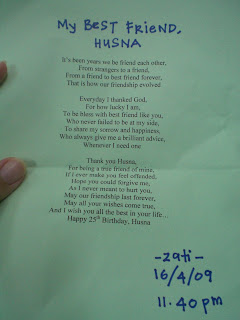 My BEST FRIEND,
HUSNA
It's been years we be friend each other,
From strangers to a friend,
From a friend to best friend forever,
That is how our friendship evolved
Everyday I thanked God,
For how lucky I am,
To be bless with best friend like you,
Who never failed to be at my side,
To share my sorrow and happiness,
Who always give me a brilliant advice,
Whenever I need one
Thank you Husna,
For being a true friend of mine,
If I ever make you feel offended,
Hope you could forgive me,
As I never meant to hurt you,
May our friendship last forever,
May all your wishes come true,
And I wish you all the best in your life…
Happy 25th Birthday, Husna
-zati-
16/4/09
11.40 pm